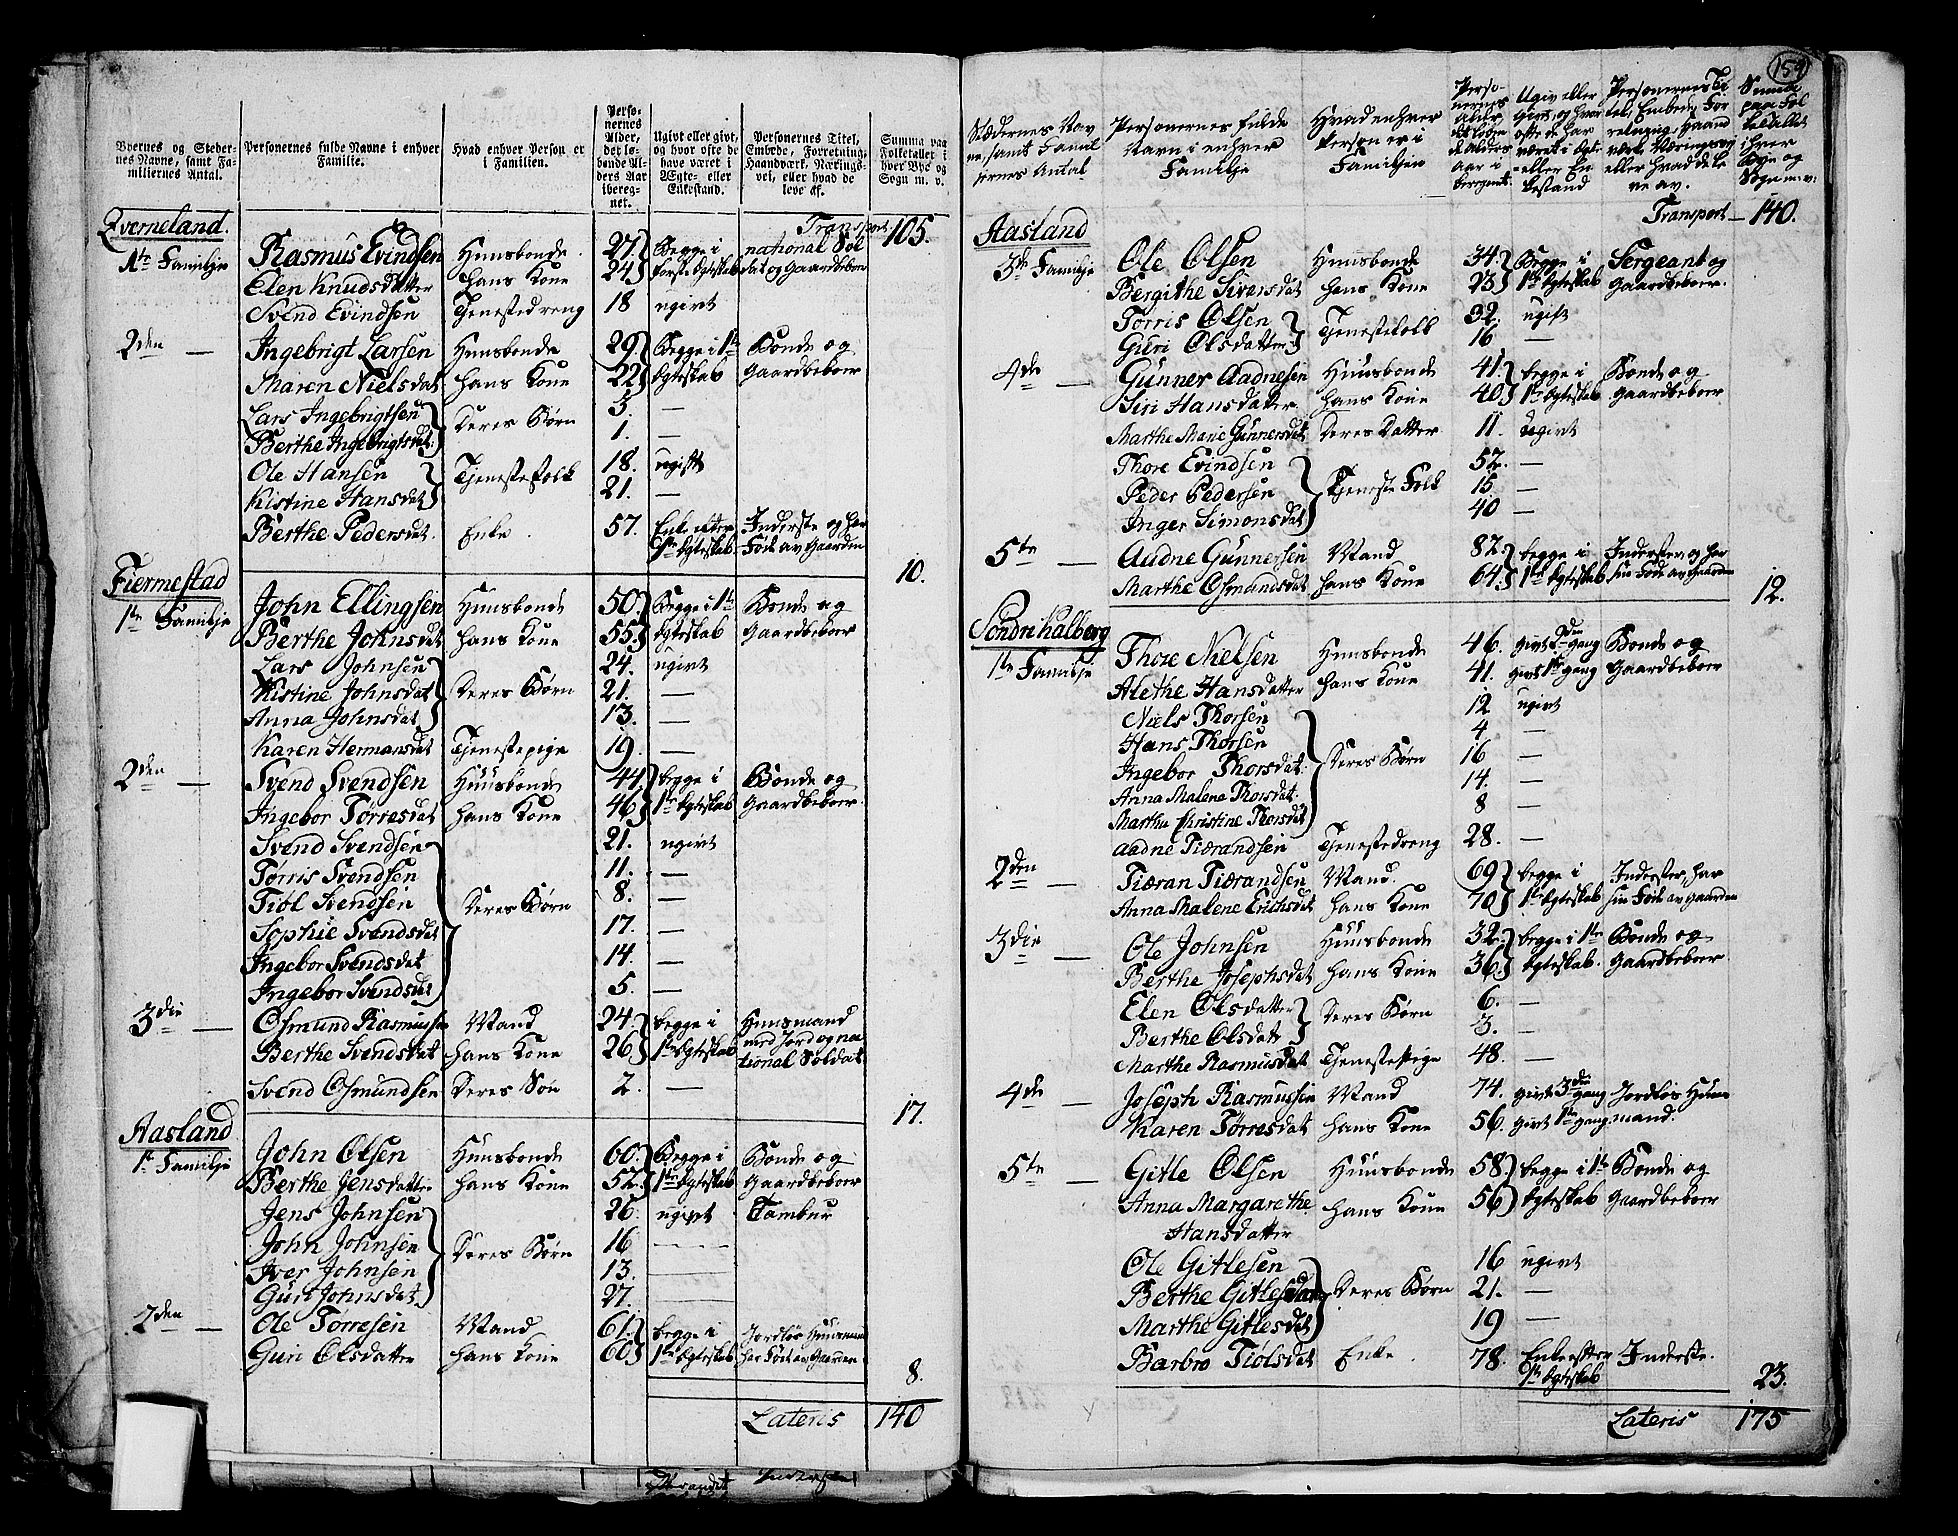 159
Byernes og Stedernes Navne, samt Familiernes Antal.
Personernes fulde Navne i enhver Familie.
Hvad enhver Person er i Familien.
Personernes Alder, det løbende Alders Aar iberegnet.
Ugivt eller givt, og hvor ofte de have været i Ægte- eller Enkestand.
Personernes Titel, Embede, Forretning, Haandværk, Næringsvei, eller hvad de leve af.
Summa paa Folketallet i hver Bye og Sogn m. v.
Transport 105.
Qverneland.
1te Familie Rasmus Evindsen Huusbonde 27 Begge i national Sol
Elen Knudsdatter hans Kone 24 første Ægteskab dat og Gaardbeboer
Svend Evindsen Tjenestedreng 18 ugivt
2den — Ingebrigt Larsen Huusbonde 29 Begge i 1te Bonde og
Maren Nielsdat hans Kone 22 Ægteskab Gaardbeboer
Lars Ingebrigtsen Deres Børn 3. —
Berthe Ingebrigtsdat 1. —
Ole Hansen Tjenestefolk 18. ugift
Kistine Hansdat 21. —
Berthe Pedersdat. Enke. 57. Enke efter Inderste og har
1te Ægteskab Føde av Gaarden
10.
Fiermestad
1te Familje John Ellingsen Huusbonde 50. Begge i 1te Bonde og
Berthe Johnsdat hans Kone 55 Ægteskab Gaardbeboer
Lars Johnsen Deres Børn 24. ugivt
Kistine Johnsdat 21. —
Anna Johnsdat 13. —
Karen Hermansdat Tjenestepige 19. —
2den — Svend Svendsen Huusbonde 44. begge i Bonde og
Ingebor Tørresdat hans Kone 46 1te Ægteskab Gaardbeboer
Svend Svendsen 21. ugivt
Tørris Svendsen 11. —
Tiøl Svendsen Deres Børn 8. —
Sophie Svendsdat 17. —
Ingebor Svendsdat 14. —
Ingebor Svendsdat 5. —
3die — Osmund Rasmussen Mand 24. begge i Huusmand
Berthe Svendsdat hans Kone 26 1te Ægteskab med Jord og na
tional Soldat
Svend Osmundsen Deres Søn 2. —
17.
Aasland
1te Familje John Olsen Huusbonde 60. Begge i Bonde og
Berthe Jensdatter hans Kone 52. 1te Ægteskab Gaardbeboer
Jens Johnsen 26. ugivt Tambur
John Johnsen Deres Børn 16 —
Iver Johnsen 13. —
Guri Johnsdat 27. —
2den — Ole Torresen Mand 61. begge i Jordløs Huusman
Guri Olsdatter hans Kone 60 1te Ægteskab har Føde av Gaarden
8.
Lateris 140
Stædernes Navne samt Familiernes Antal
Personernes fulde Navn i enhver Familje
Hvad enhver Person er i Familjen
Personernes alder, det løbende alders aar i beregnet.
Ugiv eller givt, og hvor ofte de har været i Ægte- eller Enkestand
Personernes Titel, Embede, Forretning, Haandværk Næringsvej eller hvad de leve av.
Summa paa Folketallet i hver Bye og Sogn m: v:
Transport — 140.
Aasland
3die Familje Ole Olsen Huusbonde 34. Begge i Sergeant og
Bergithe Siversdat hans Kone 23 1te Ægteskab Gaardbeboer.
Torris Olsen Tjenestefolk 32. ugift
Guri Olsdatter 16 —
4de — Gunner Aadnesen Huusbonde 41. begge i Bonde og
Siri Hansdatter hans Kone 40 1te Ægteskab Gaardbeboer
Marthe Marie Gunnersdat Deres Datter 11. ugivt
Thore Evindsen 52. —
Peder Pedersen Tjeneste Folk 15 —
Inger Simonsdat 40 —
5te — Aadne Gunnersen Mand 82. begge i Inderster og har
Marthe Osmundsdat hans Kone 64. 1te Ægteskab sin Føde av Gaarden
12.
Søndre Kalberg
1te Familje Thore Nielsen Huusbonde 46. givt 2den gang Bonde og
Alethe Hansdatter hans Kone 41. givt 1te gang Gaardbeboer
Niels Thorsen 12 ugivt
Hans Thorsen 4 —
Ingebor Thorsdat. Deres Børn 16 —
Anna Malena Thorsdat. 14. —
Martha Christine Thorsdat 8 —
Aadne Tiærandsen Tjenestedreng 28. —
2den — Tiæran Tiærandsen Mand. 69 begge i Inderster, har
Anna Malene Erichsdat hans Kone 70 1te Ægteskab sin Føde av Gaarden
3die — Ole Johnsen Huusbonde 32. begge i 1te Bonde og
Berthe Josephsdat hans Kone 36 Ægteskab. Gaardbeboer
Elen Olsdatter Deres Børn 6. —
Berthe Olsdat 3. —
Marthe Rasmusdat Tjenestepige 48. —
4de — Joseph Rasmussen Mand 74. givt 3die gang Jordløs Huus
Karen Tørresdat hans Kone 56. givt 1te gang. mand.
5te — Gitle Olsen Huusbonde 58 begge i 1te Bonde og
Anna Margarethe hans Kone 56 Ægteskab Gaardbeboer
Hansdatter
Ole Gitlesen 16 ugivt
Berthe Gitlesdat Deres Børn 21. —
Marthe Gitlesdat 19 —
Barbro Tiølsdat Enke. 78. Enke efter Inderste.
1te Ægteskab
23.
Lateris 175